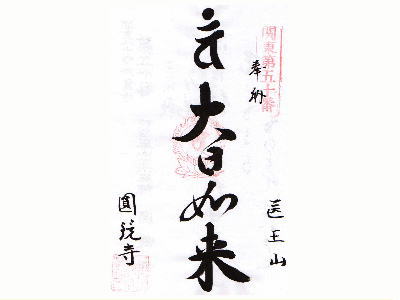 関東第五十番
奉納
大日如来
医王山
圓鏡寺